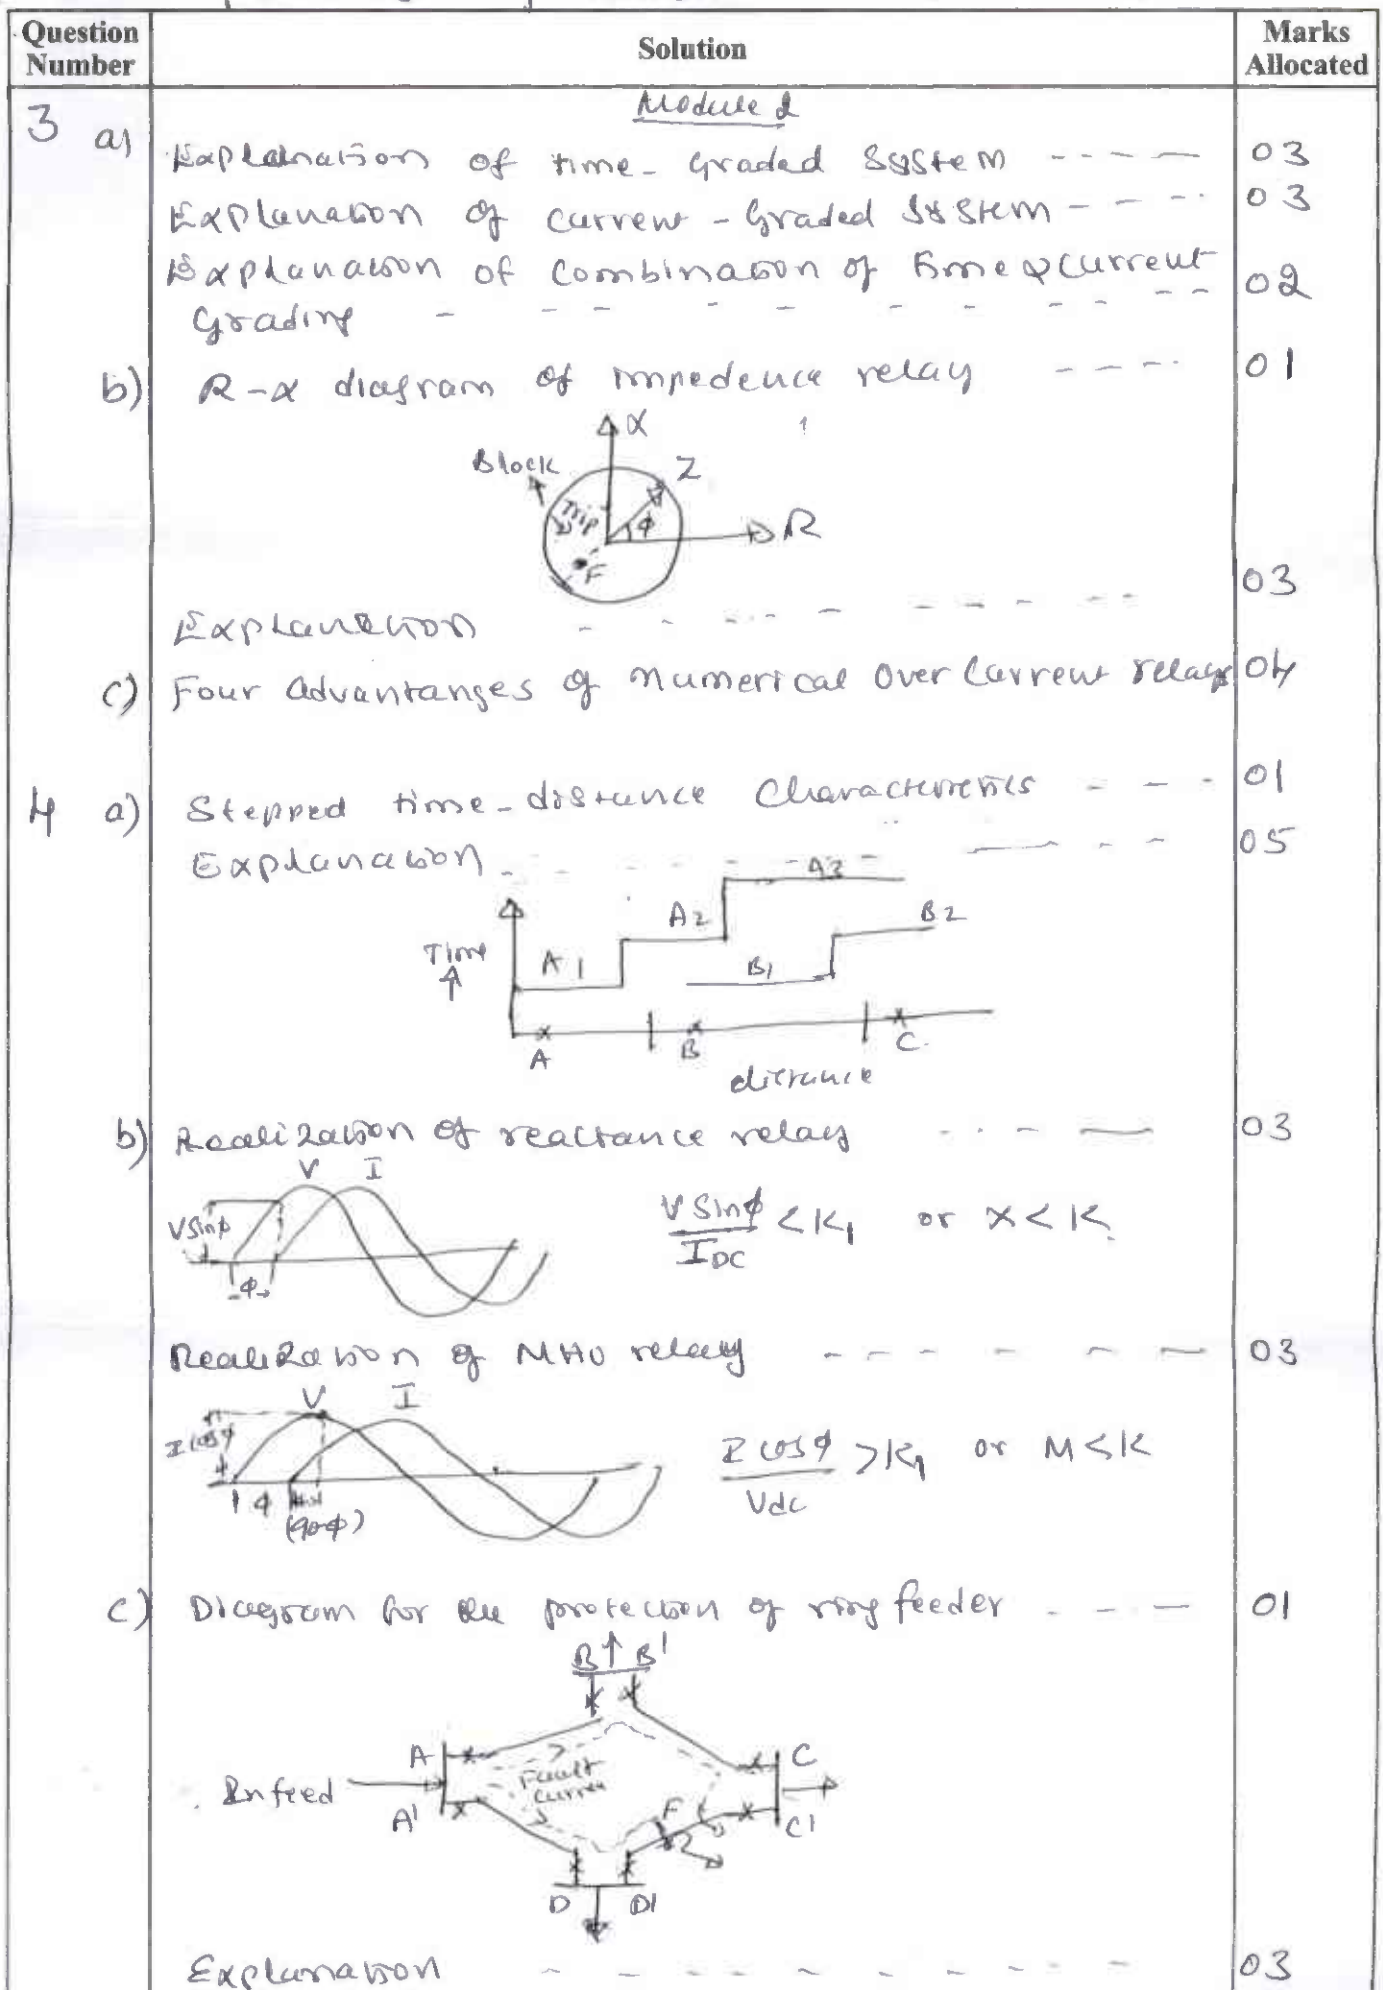 Question Number Solution Marks Allocated
Module 2
3 a) Explanation of time-Graded System ---- 03
Explanation of current-Graded System ---- 03
Explanation of Combination of time & current
Grading - - - - - - - - - 02
b) R-X diagram of impedence relay ---- 01
X
Block
Z
Trip
φ
R
F
Explanation - - - - - - - - 03
c) Four advantanges of Numerical Over Current relays 04
4 a) Stepped time-distance Characteristics - - - 01
Explanation - - - - - - - - 05
A3
A2 B2
Time A1 B1
A B C
distance
b) Realization of reactance relay - - - - 03
V I
V Sinφ
φ
V Sinφ / IDC < K1 or X < K
Realization of MHO relay - - - - - - 03
V I
I cosφ
φ
(90-φ)
I cosφ / Vdc > K1 or M < K
c) Diagram for the protection of ring feeder - - - 01
B B'
A C
Fault
Infeed current
F
A' C'
D D'
Explanation - - - - - - - - - 03